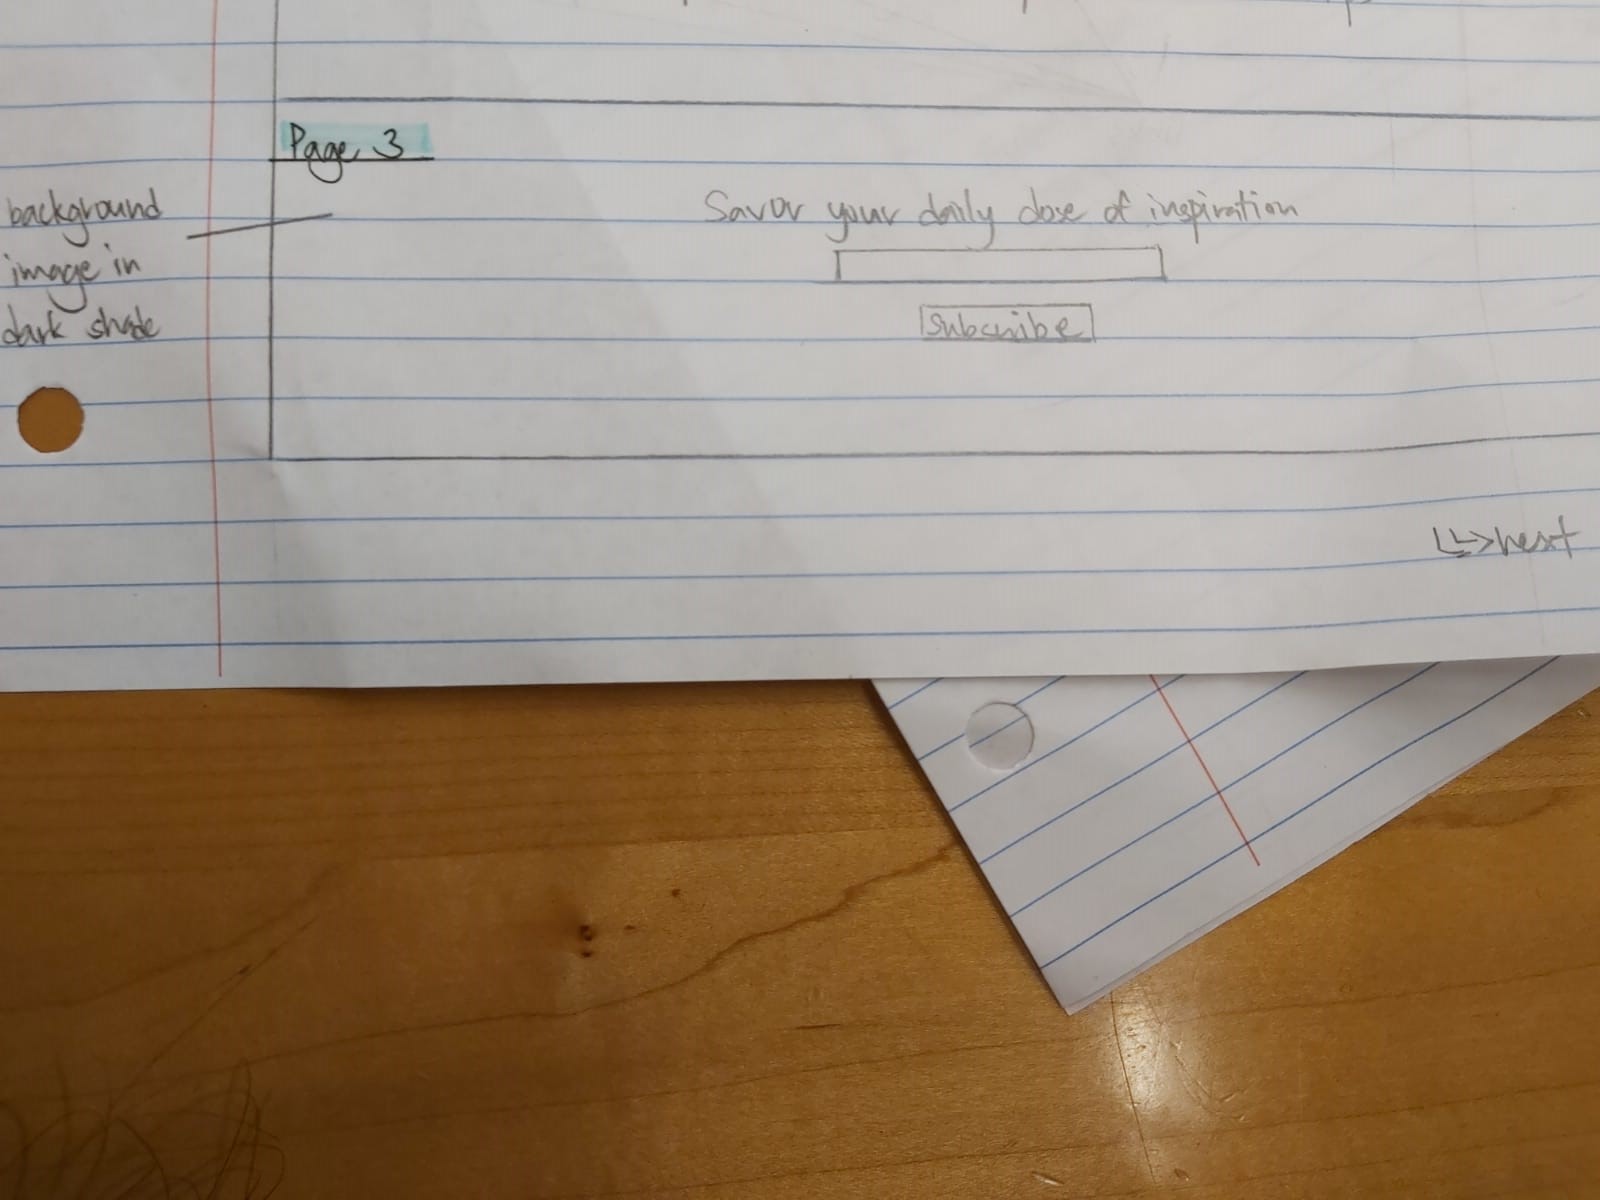 Page 3
background
image in
dark shade
Savor your daily dose of inspiration
Subscribe
next